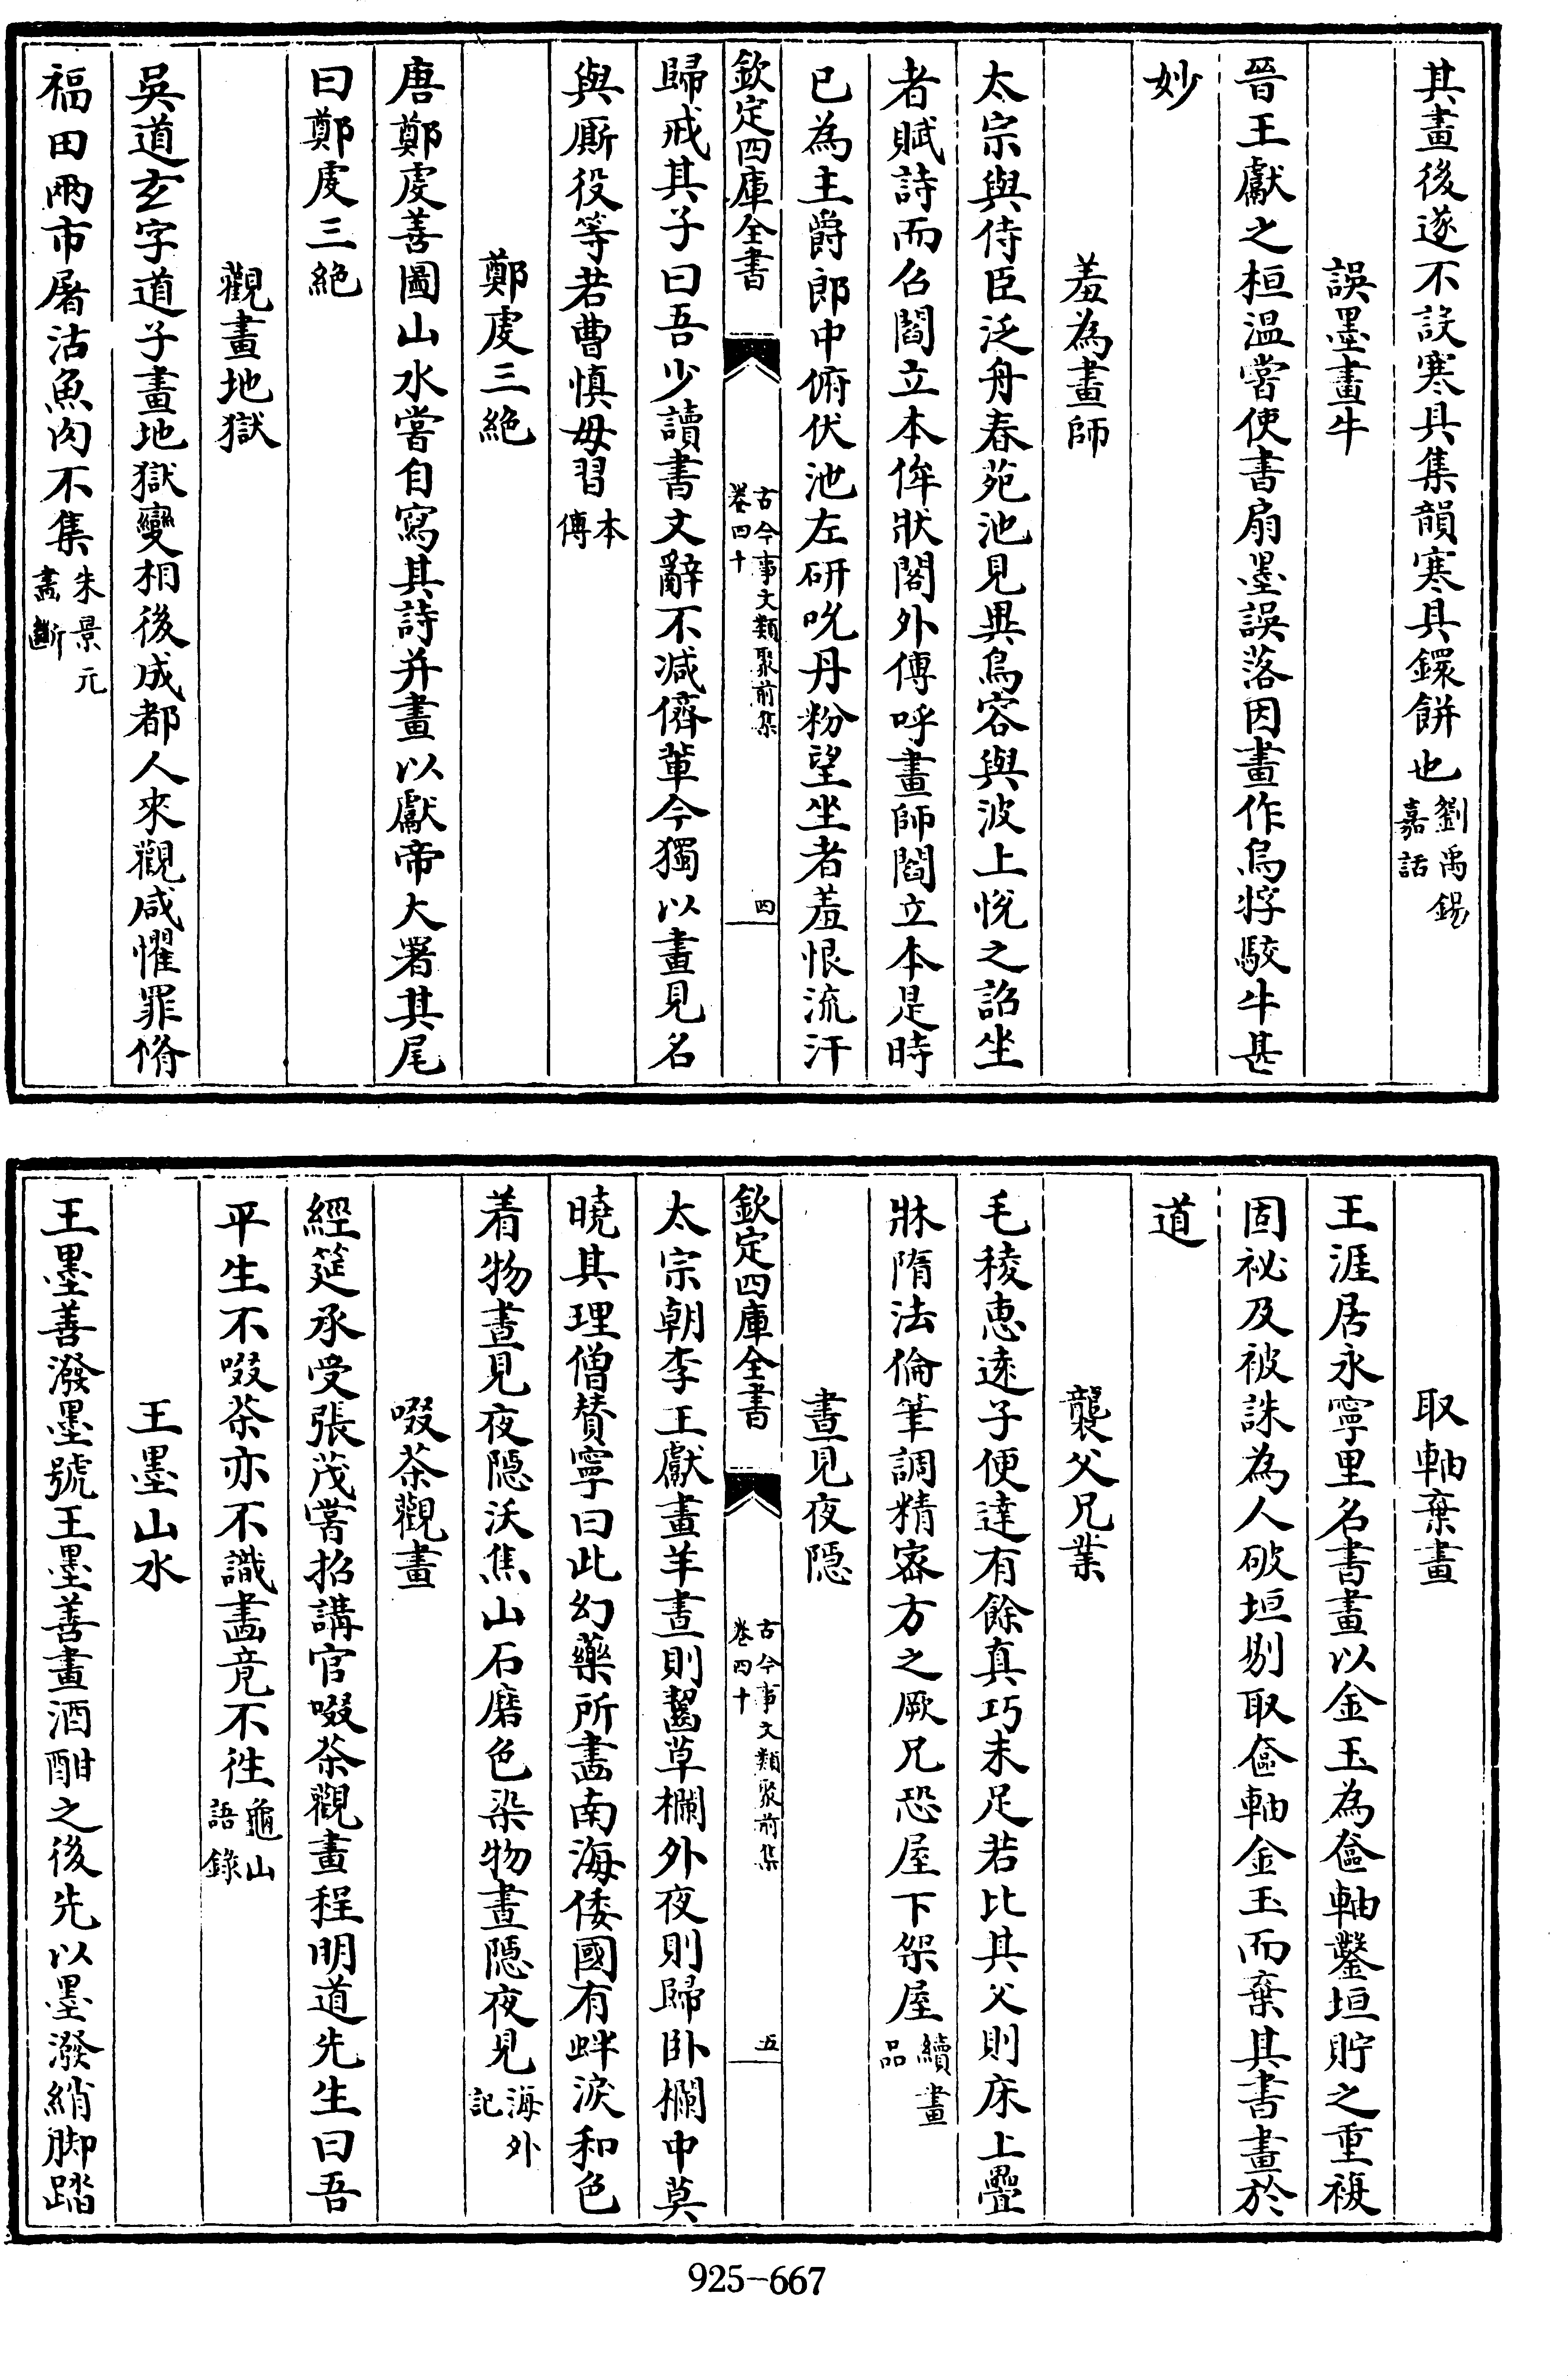 其畫後遂不設寒具集韻寒具鐶餅也劉禹錫嘉話
誤墨畫牛
晉王獻之桓温嘗使書扇墨誤落因畫作烏牸駮牛甚
妙
羞為畫師
太宗與侍臣泛舟春苑池見異鳥容與波上悅之詔坐
者賦詩而召閻立本侔狀閣外傳呼畫師閻立本是時
已為主爵郎中俯伏池左研吮丹粉望坐者羞恨流汗
欽定四庫全書 古今事文類聚前集卷四十 四
歸戒其子曰吾少讀書文辭不減儕輩今獨以畫見名
與厮役等若曹慎毋習本傳
鄭虔三絶
唐鄭虔善圖山水嘗自寫其詩并畫以獻帝大署其尾
曰鄭虔三絶
觀畫地獄
吳道玄字道子畫地獄變相後成都人來觀咸懼罪脩
福田兩市屠沽魚肉不集朱景元畫斷
取軸棄畫
王涯居永寧里名書畫以金玉為奩軸鑿垣貯之重複
固祕及被誅為人破垣剔取奩軸金玉而棄其書畫於
道
襲父兄業
毛稜惠遠子便達有餘真巧未足若比其父則床上疊
牀隋法倫筆調精宻方之厥兄恐屋下架屋續畫品
晝見夜隱
欽定四庫全書 古今事文類聚前集卷四十 五
太宗朝李王獻畫羊晝則齧草欄外夜則歸卧欄中莫
曉其理僧贊寧曰此幻藥所畫南海倭國有蚌淚和色
着物晝見夜隱沃焦山石磨色染物晝隱夜見海外記
啜茶觀畫
經筵承受張茂嘗招講官啜茶觀畫程明道先生曰吾
平生不啜茶亦不識畫竟不徃龜山語錄
王墨山水
王墨善潑墨號王墨善畫酒酣之後先以墨潑綃脚踏
925-667